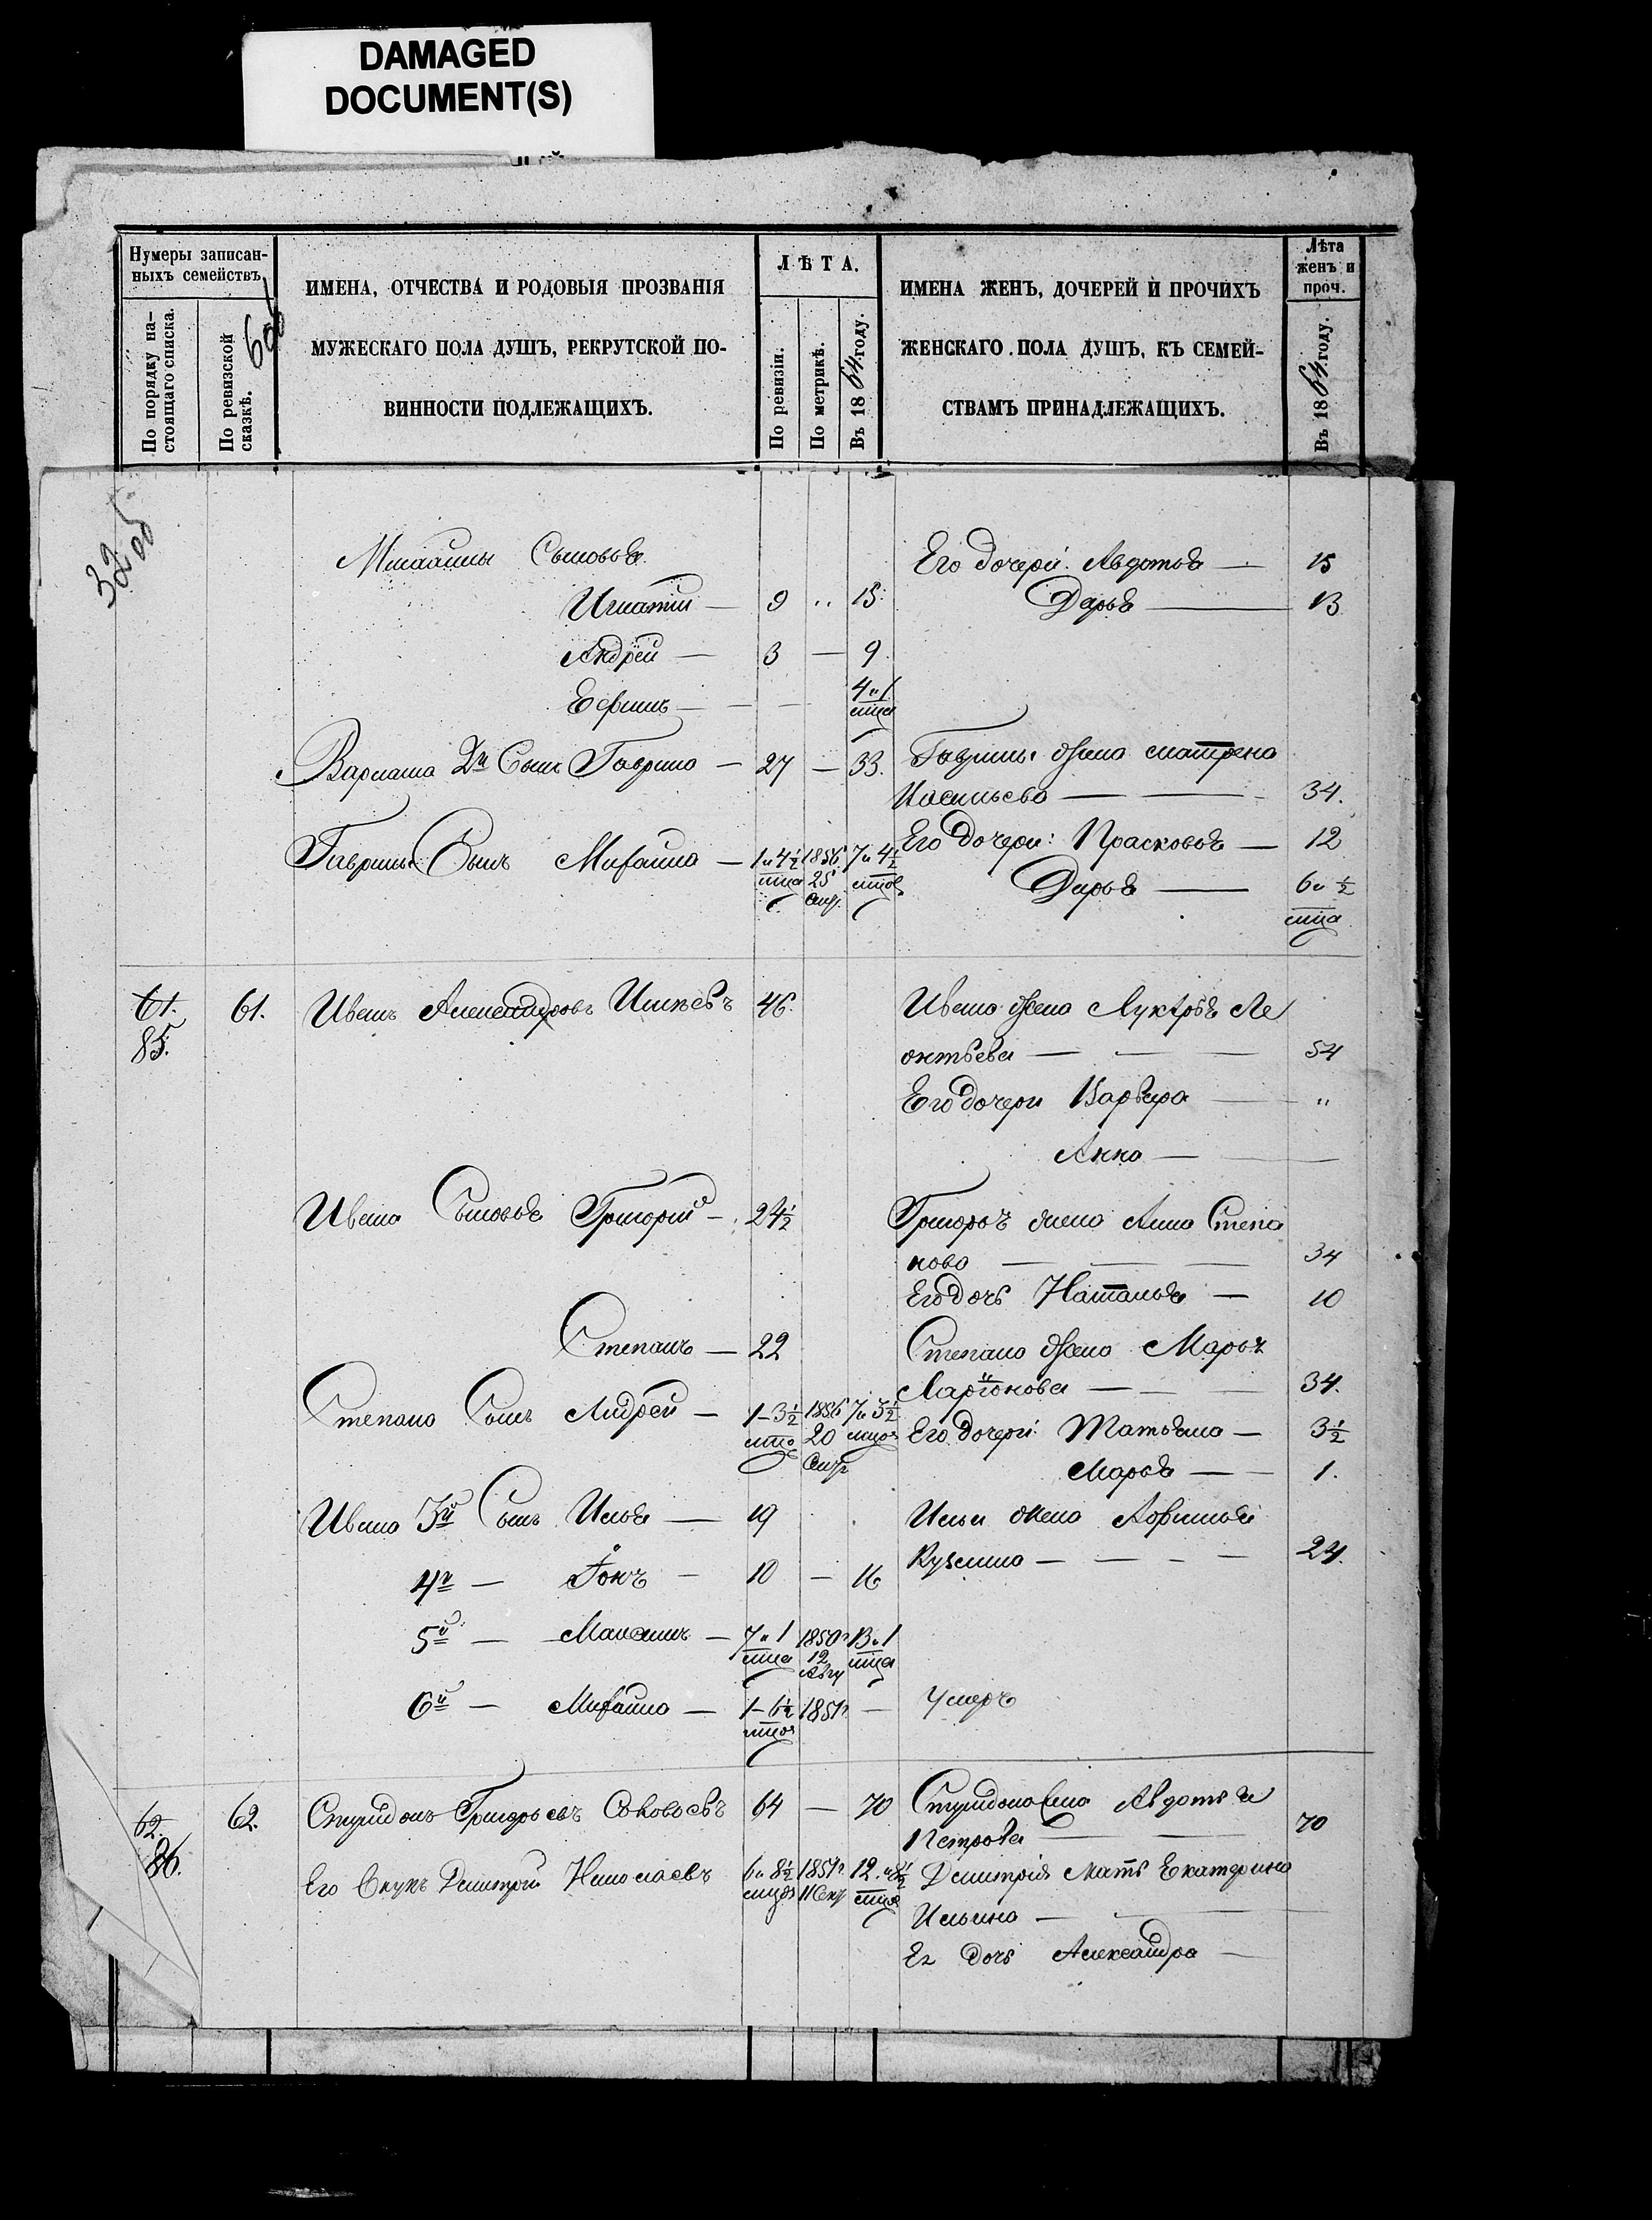 DAMAGED
DOCUMENT(S)
Нумеры записан-
ныхъ семействъ.
По порядку на-
стоящаго списка.
По ревизской
сказкѣ.
ИМЕНА, ОТЧЕСТВА И РОДОВЫЯ ПРОЗВАНІЯ
МУЖЕСКАГО ПОЛА ДУШЪ, РЕКРУТСКОЙ ПО-
ВИННОСТИ ПОДЛЕЖАЩИХЪ.
ЛѢТА.
По ревизіи.
По метрикѣ.
Въ 1864 году.
ИМЕНА ЖЕНЪ, ДОЧЕРЕЙ И ПРОЧИХЪ
ЖЕНСКАГО ПОЛА ДУШЪ, КЪ СЕМЕЙ-
СТВАМЪ ПРИНАДЛЕЖАЩИХЪ.
Лѣта
женъ и
проч.
Въ 1864 году.
Сыновья Его дочери: Авдотья — 15
Игнатій — 9 " 15. Дарья — 13
Андрей — 3 — 9.
Ефимъ — — — 4 и 1
мца
2й Сынъ Гаврило — 27 — 33. Гаврилы жена
34.
Гаврилы Сынъ Михайло — 1 и 4½ 1856 7 и 4½ Его дочери: Прасковья — 12
мца 25 мцов
Дарья — 6 и ½
мца
61. 61. Иванъ Александровъ 46. Ивана жена Лукерья Ле
85.
онтьева — — — 54
Его дочери Варвара — "
Анна —
Ивана Сыновья Григорій — 24½ Григорья жена Анна Степа
нова — — — 34
Его дочь Наталья — 10
Степанъ — 22 Степана жена Марья
Ларіонова — — — 34.
Степана Сынъ Андрей — 1-3½ 1856 7 и 3½ Его дочери: Татьяна — 3½
20
Марья — — 1.
Ивана 3й Сынъ Илья — 19 Ильи жена Афимья
Кузмина — — — 24.
4й — 10 — 16
5й — 7 и 1 1850 13 и 1
мца 12 мца
Авгу
6й — Михайло — 1-6½ — Умеръ
62. 62. Спиридонъ Григорьевъ 64 — 70 Спиридона жена Авдотья
86.
Петрова — — 70
Его внукъ Дмитрій Николаевъ 6 и 8½ 1851 12 и 8½ Дмитрія мать Екатерина
Ильина — —
Ея дочь Александра —